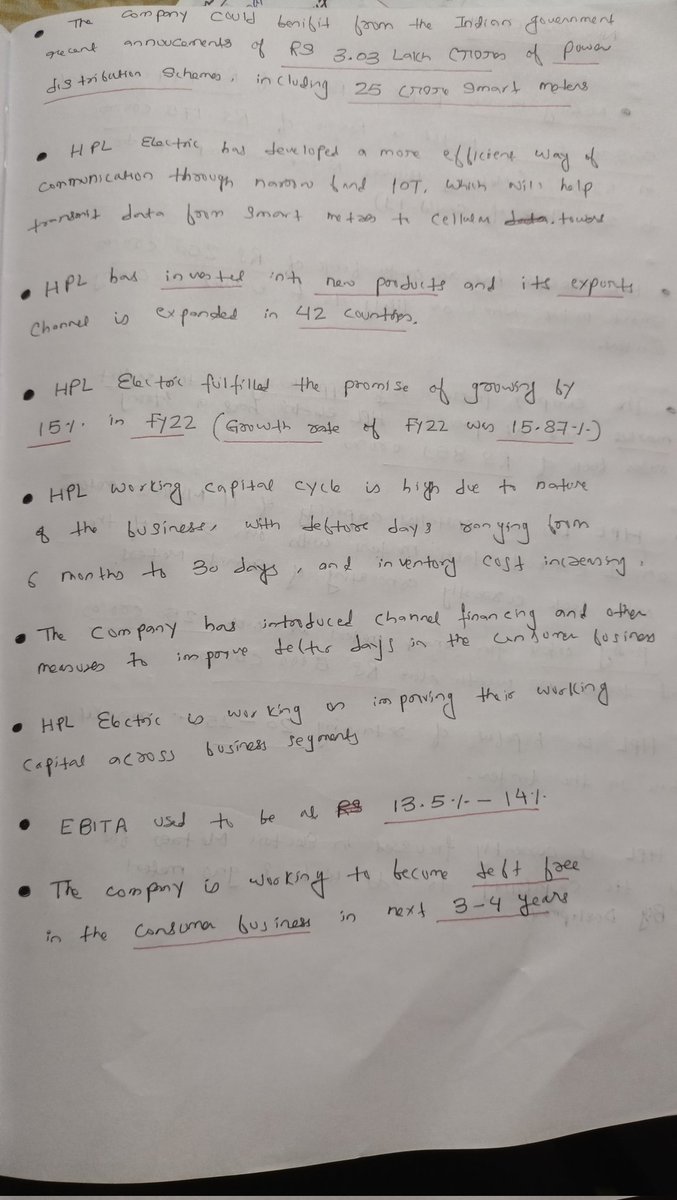 • The company could benifit from the Indian government
recent annoucements of RS 3.03 Lakh crores of Power
distribution Schemes, including 25 crore smart meters
• HPL Electric has developed a more efficient way of
communication through narrow band IOT, which will help
transmit data from smart metres to cellular towers
• HPL has invested into new products and its exports
Channel is expanded in 42 countries.
• HPL Electric fulfilled the promise of growing by
15% in FY22 (Growth rate of FY22 was 15.87%)
• HPL working capital cycle is high due to nature
of the business, with debtors days ranging from
6 months to 30 days, and inventory cost increasing.
• The company has introduced channel financing and other
measures to improve debtor days in the consumer business
• HPL Electric is working on improving their working
Capital across business segments
• EBITA used to be at RS 13.5% - 14%
• The company is working to become debt free
in the consumer business in next 3-4 years